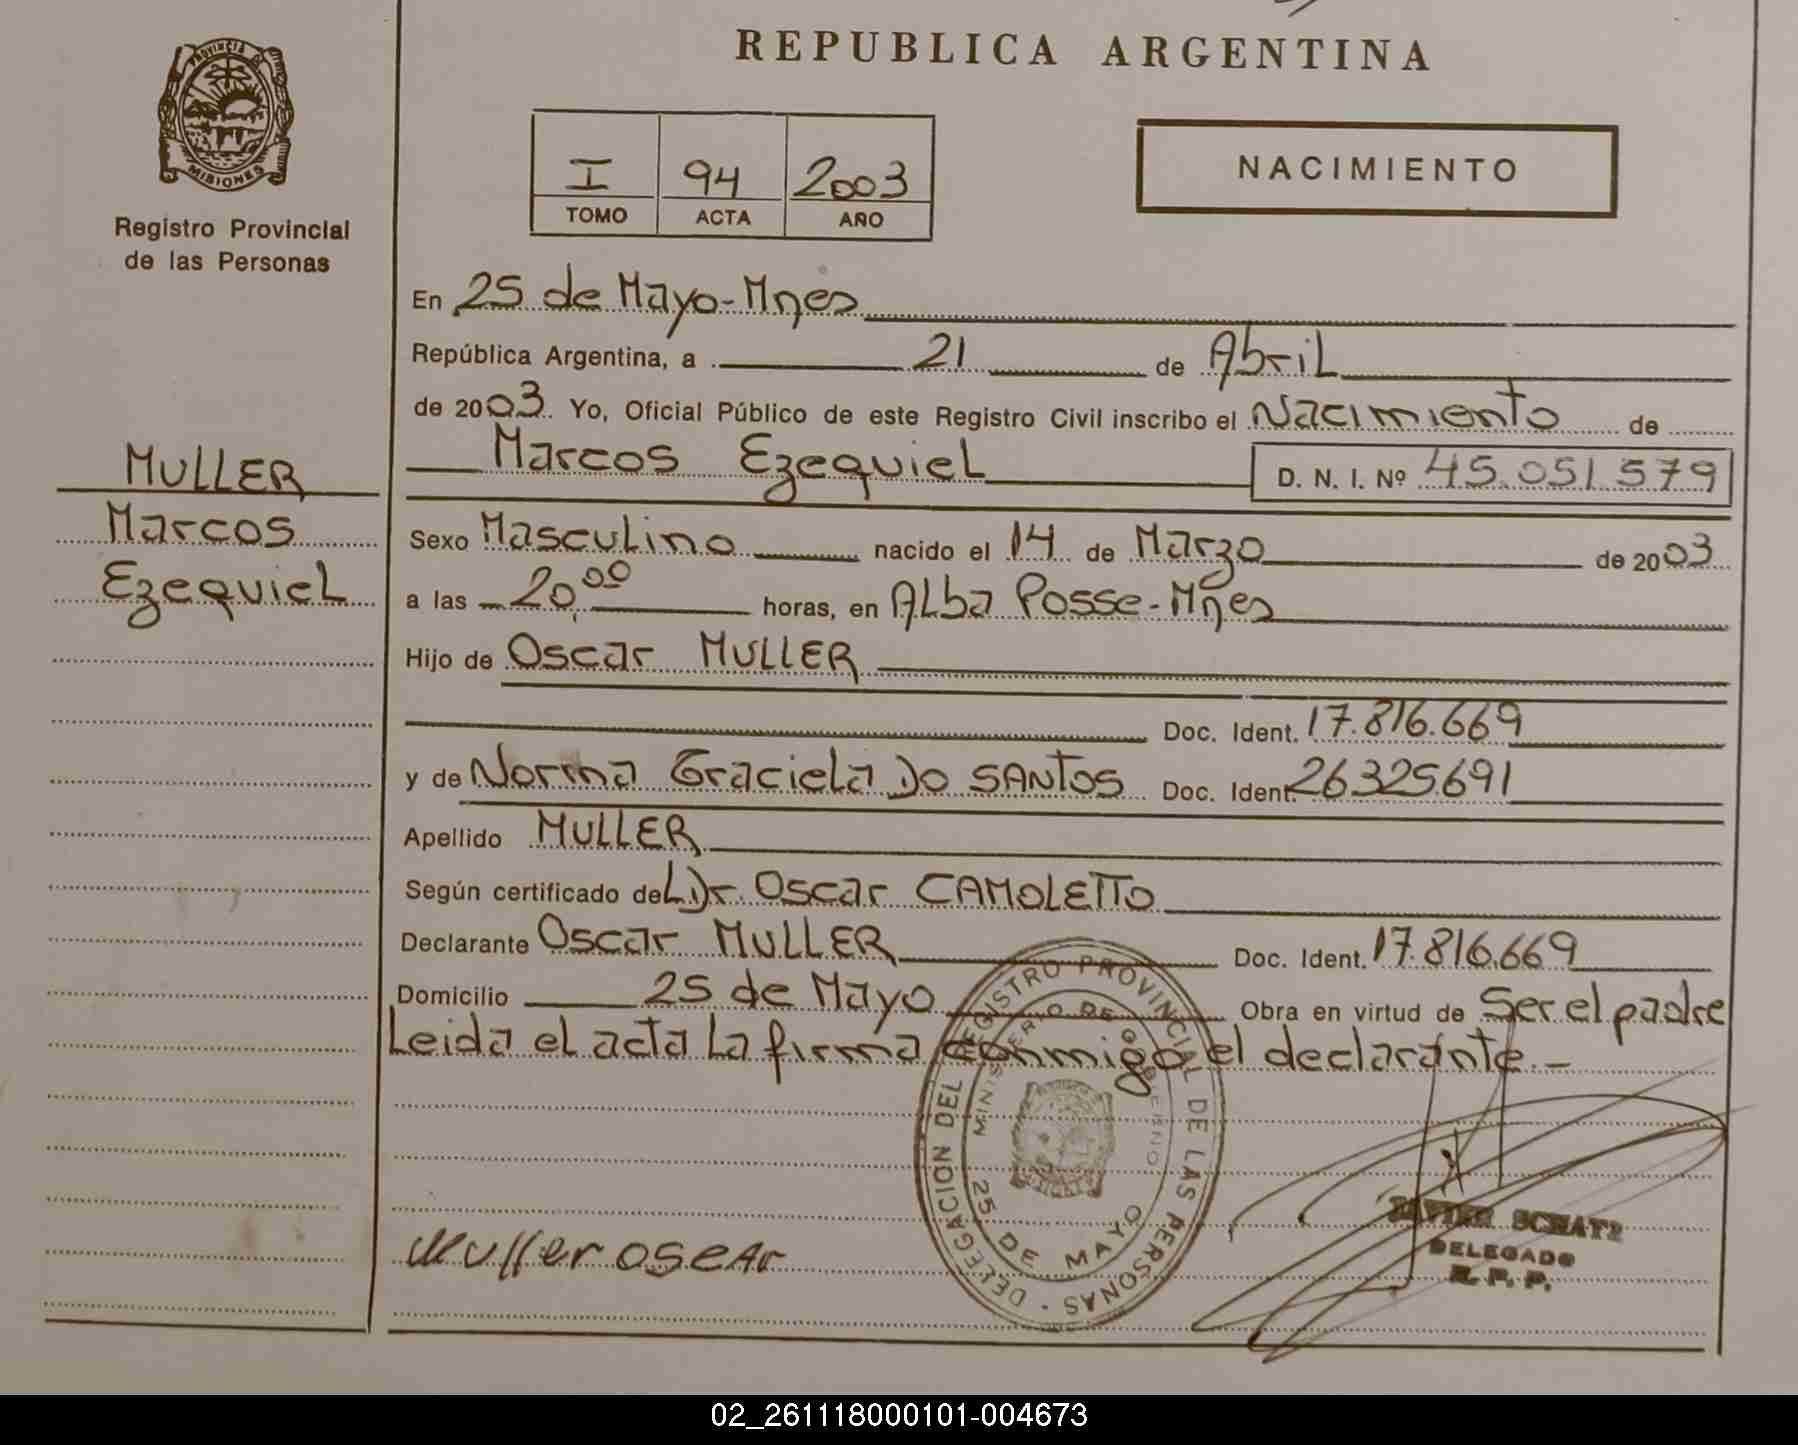 REPUBLICA ARGENTINA
PROVINCIA DE
MISIONES
Registro Provincial
de las Personas
I 94 2003
TOMO ACTA AÑO
NACIMIENTO
MULLER
Marcos
Ezequiel
En 25 de Mayo-Mnes
República Argentina, a 21 de Abril
de 2003 Yo, Oficial Público de este Registro Civil inscribo el Nacimiento de
Marcos Ezequiel D. N. I. Nº 45.051.579
Sexo Masculino nacido el 14 de Marzo de 2003
a las 20,00 horas, en Alba Posse-Mnes
Hijo de Oscar MULLER
Doc. Ident. 17.816.669
y de Norma Graciela DO SANTOS Doc. Ident. 26325691
Apellido MULLER
Según certificado del Dr. Oscar CAMOLETTO
Declarante Oscar MULLER Doc. Ident. 17.816.669
Domicilio 25 de Mayo Obra en virtud de Ser el padre
Leida el acta la firma conmigo el declarante.-
DELEGACION DEL REGISTRO PROVINCIAL DE LAS PERSONAS
MINISTERIO DE GOBIERNO
25 DE MAYO
Muller oscar
JAVIER SCHATZ
DELEGADO
R. P. P.
02_261118000101-004673